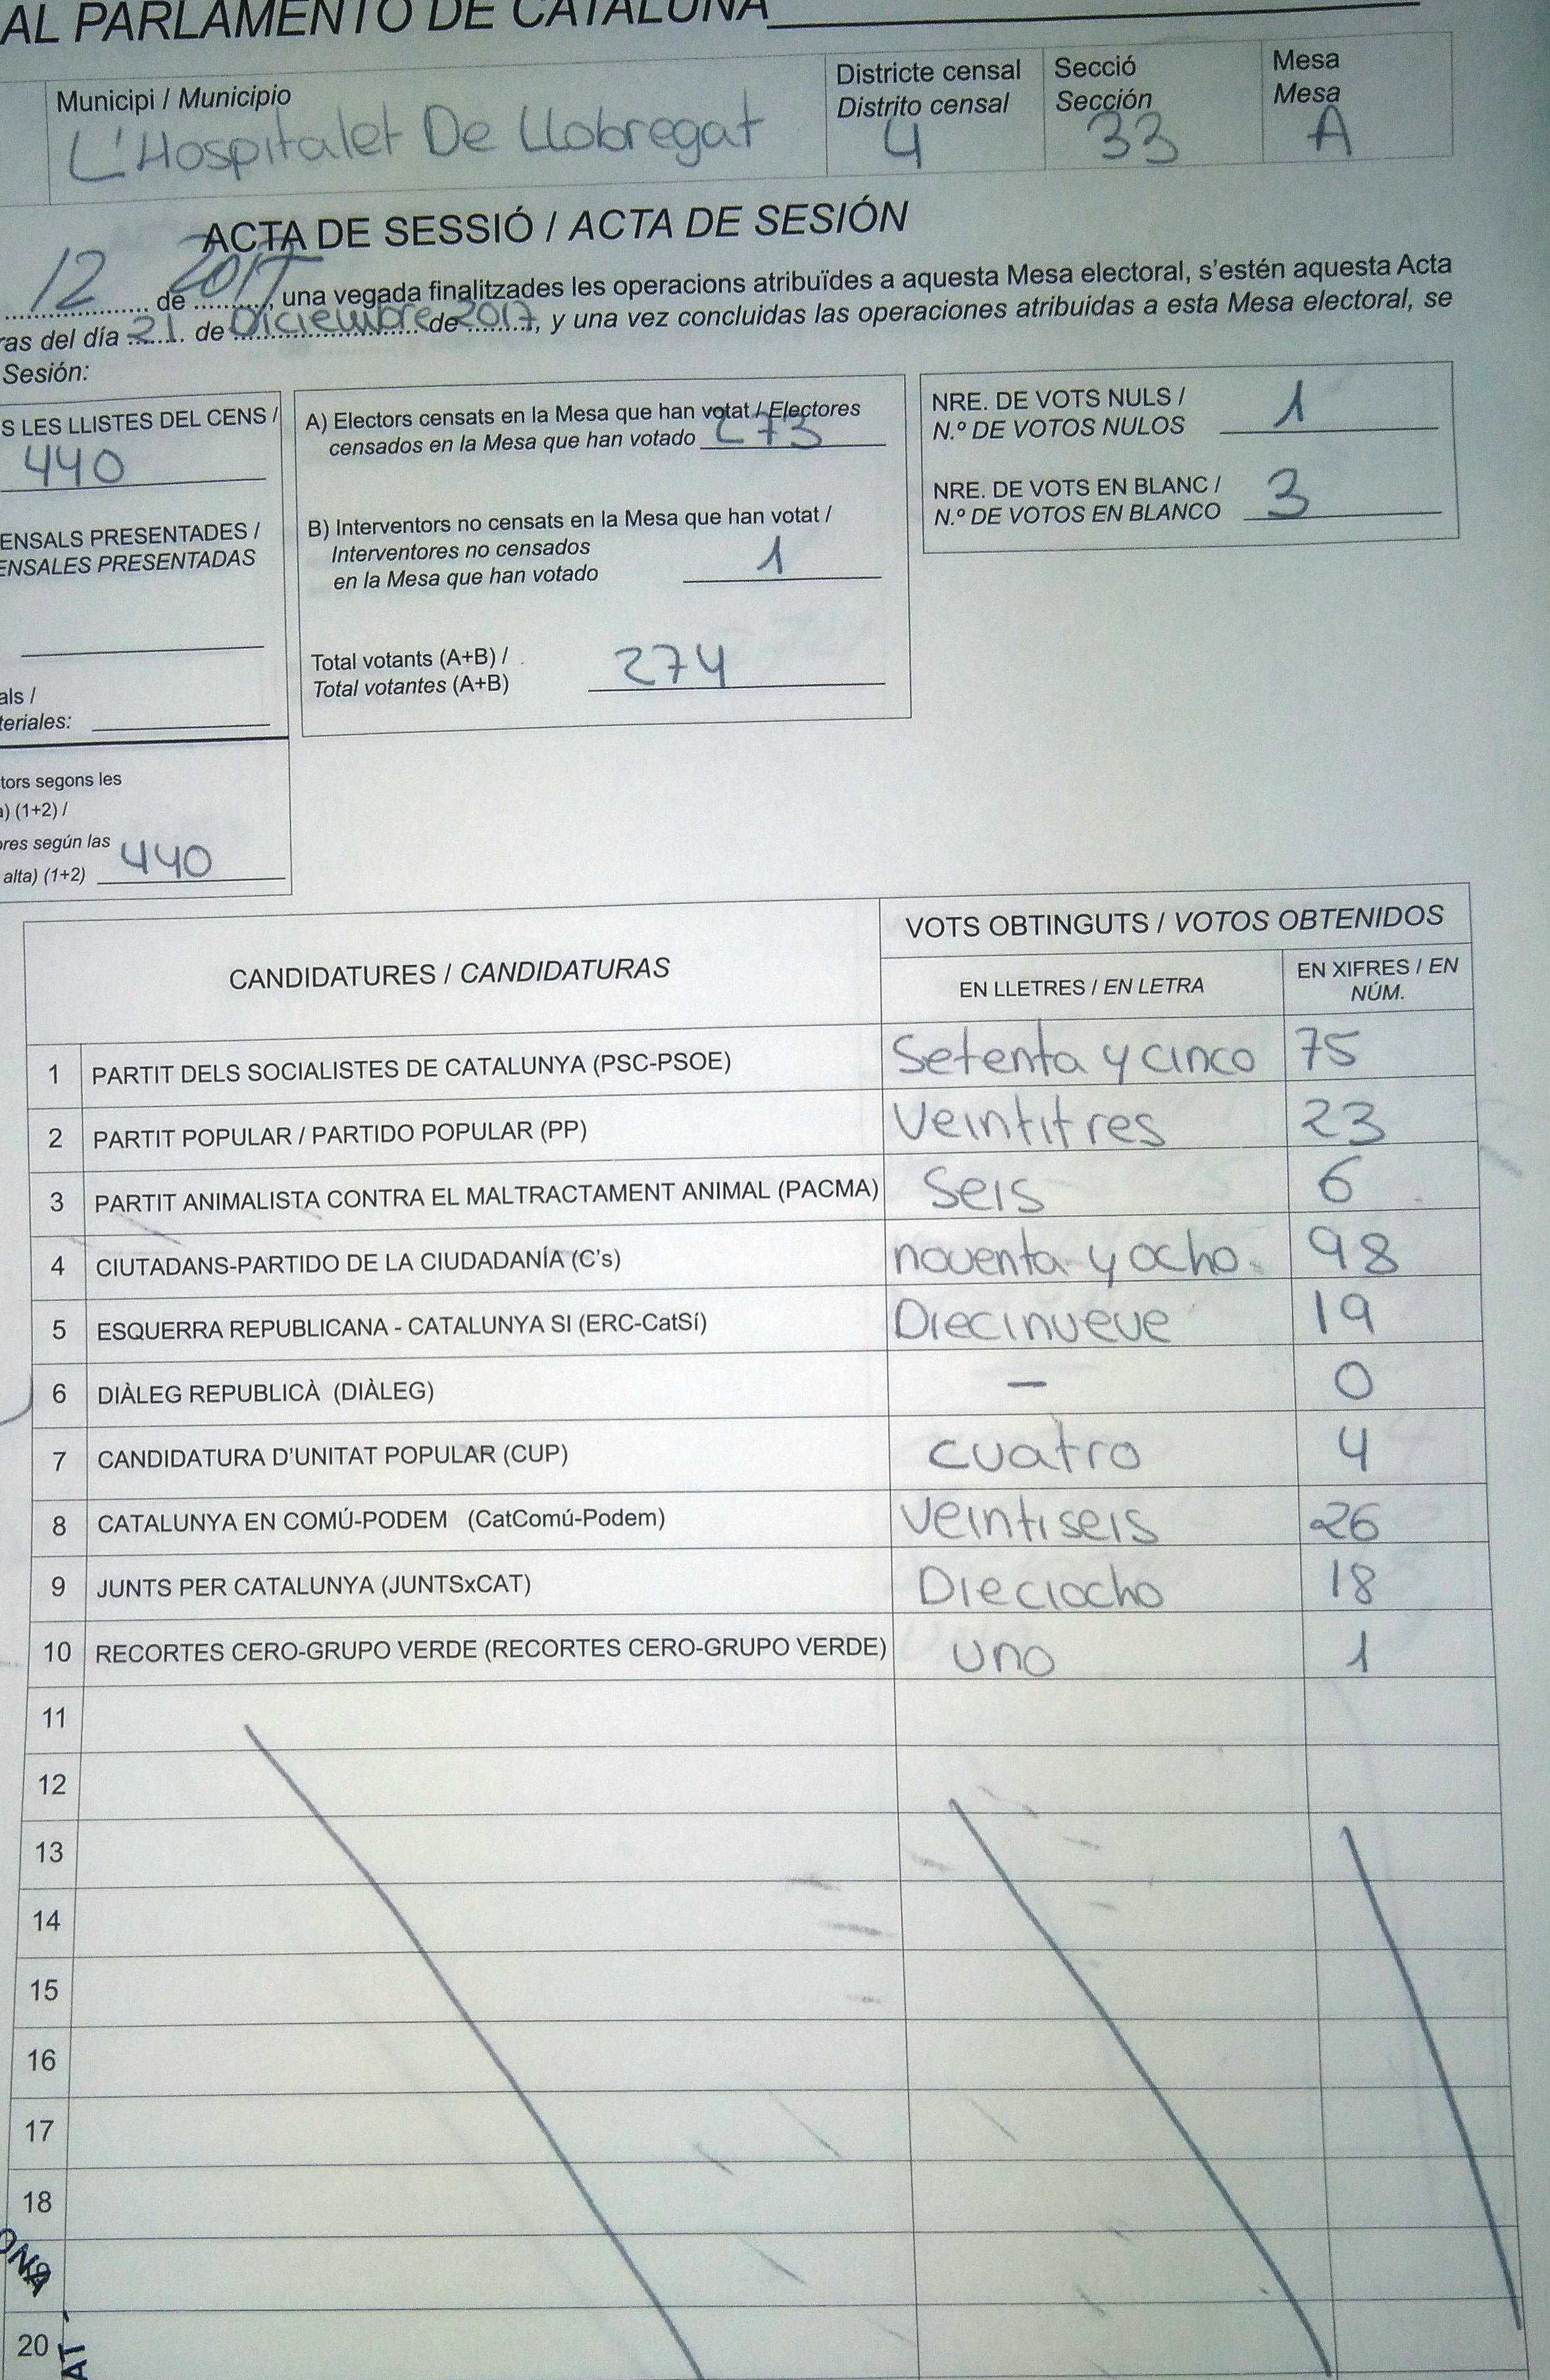 AL PARLAMENTO DE CATALUÑA
Municipi / Municipio
L'Hospitalet De Llobregat
Districte censal
Distrito censal
4
Secció
Sección
33
Mesa
Mesa
A
ACTA DE SESSIÓ / ACTA DE SESIÓN
12 de 2017, una vegada finalitzades les operacions atribuïdes a aquesta Mesa electoral, s'estén aquesta Acta
ras del día 21 de Diciembre de 2017, y una vez concluidas las operaciones atribuidas a esta Mesa electoral, se
Sesión:
S LES LLISTES DEL CENS /
440
ENSALS PRESENTADES /
ENSALES PRESENTADAS
als /
teriales:
tors segons les
a) (1+2) /
ores según las
alta) (1+2) 440
A) Electors censats en la Mesa que han votat / Electores
censados en la Mesa que han votado 273
B) Interventors no censats en la Mesa que han votat /
Interventores no censados
en la Mesa que han votado 1
Total votants (A+B) /
Total votantes (A+B) 274
NRE. DE VOTS NULS /
N.º DE VOTOS NULOS 1
NRE. DE VOTS EN BLANC /
N.º DE VOTOS EN BLANCO 3
CANDIDATURES / CANDIDATURAS
VOTS OBTINGUTS / VOTOS OBTENIDOS
EN LLETRES / EN LETRA
EN XIFRES / EN
NÚM.
1 PARTIT DELS SOCIALISTES DE CATALUNYA (PSC-PSOE) Setenta y cinco 75
2 PARTIT POPULAR / PARTIDO POPULAR (PP) Veintitres 23
3 PARTIT ANIMALISTA CONTRA EL MALTRACTAMENT ANIMAL (PACMA) Seis 6
4 CIUTADANS-PARTIDO DE LA CIUDADANÍA (C's) noventa y ocho 98
5 ESQUERRA REPUBLICANA - CATALUNYA SI (ERC-CatSí) Diecinueve 19
6 DIÀLEG REPUBLICÀ (DIÀLEG) – 0
7 CANDIDATURA D'UNITAT POPULAR (CUP) cuatro 4
8 CATALUNYA EN COMÚ-PODEM (CatComú-Podem) Veintiseis 26
9 JUNTS PER CATALUNYA (JUNTSxCAT) Dieciocho 18
10 RECORTES CERO-GRUPO VERDE (RECORTES CERO-GRUPO VERDE) uno 1
11
12
13
14
15
16
17
18
20